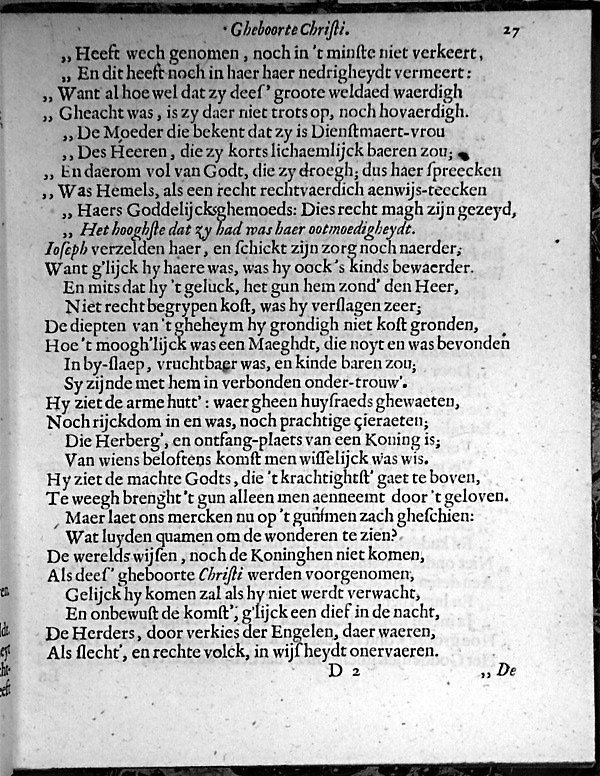 Gheboorte Chriſti. 27
„ Heeft wech genomen, noch in 't minſte niet verkeert,
„ En dit heeft noch in haer haer nedrigheydt vermeert:
„ Want al hoe wel dat zy deeſ' groote weldaed waerdigh
„ Gheacht was, is zy daer niet trots op, noch hovaerdigh.
„ De Moeder die bekent dat zy is Dienſtmaert-vrou
„ Des Heeren, die zy korts lichaemlijck baeren zou;
„ En daerom vol van Godt, die zy droegh; dus haer ſpreecken
„ Was Hemels, als een recht rechtvaerdich aenwijs-teecken
„ Haers Goddelijcks ghemoeds: Dies recht magh zijn gezeyd,
„ Het hooghſte dat zy had was haer ootmoedigheydt.
Ioſeph verzelden haer, en ſchickt zijn zorg noch naerder;
Want g'lijck hy haere was, was hy oock 's kinds bewaerder.
En mits dat hy 't geluck, het gun hem zond' den Heer,
Niet recht begrypen koſt, was hy verſlagen zeer;
De diepten van 't gheheym hy grondigh niet koſt gronden,
Hoe 't moogh'lijck was een Maeghdt, die noyt en was bevonden
In by-ſlaep, vruchtbaer was, en kinde baren zou;
Sy zijnde met hem in verbonden onder-trouw'.
Hy ziet de arme hutt': waer gheen huyſraeds ghewaeten,
Noch rijckdom in en was, noch prachtige çieraeten;
Die Herberg', en ontfang-plaets van een Koning is;
Van wiens beloftens komſt men wiſſelijck was wis.
Hy ziet de machte Godts, die 't krachtightſt' gaet te boven,
Te weegh brenght 't gun alleen men aenneemt door 't geloven.
Maer laet ons mercken nu op 't gun men zach gheſchien:
Wat luyden quamen om de wonderen te zien?
De werelds wijſen, noch de Koninghen niet komen,
Als deeſ' gheboorte Chriſti werden voorgenomen;
Gelijck hy komen zal als hy niet werdt verwacht,
En onbewuſt de komſt', g'lijck een dief in de nacht,
De Herders, door verkies der Engelen, daer waeren,
Als ſlecht', en rechte volck, in wijſheydt onervaeren.
D 2 „ De